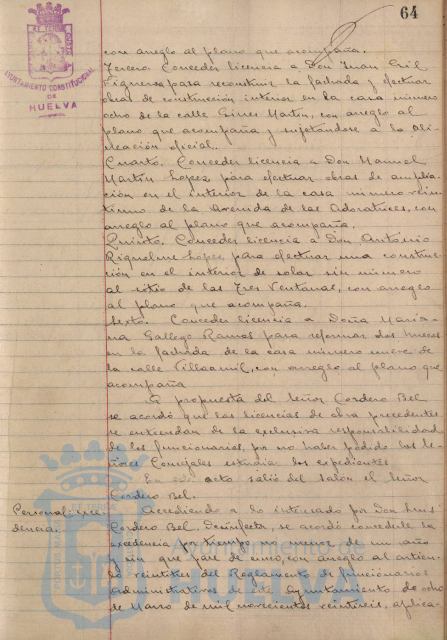 64
AYUNTAMIENTO CONSTITUCIONAL
DE
HUELVA
con arreglo al plano que acompaña.
Tercero. Conceder licencia a Don Juan Gil
Figueroa para reconstruir la fachada y efectuar
obras de construcción interior en la casa número
ocho de la calle Gines Martin, con arreglo al
plano que acompaña y sujetandose a la ali-
neación oficial.
Cuarto. Conceder licencia a Don Manuel
Martin Lopez para efectuar obras de amplia-
ción en el interior de la casa numero vein-
tiuno de la Avenida de las Adoratrices, con
arreglo al plano que acompaña.
Quinto. Conceder licencia a Don Antonio
Lopez para efectuar una construc-
ción en el interior de solar sin numero
al sitio de las Tres Ventanas, con arreglo
al plano que acompaña.
Sexto. Conceder licencia a Doña Maria-
na Gallego Ramos para reformar dos huecos
en la fachada de la casa numero nueve de
la calle Villaamil, con arreglo al plano que
acompaña
A propuesta del Señor Cordero Bel
se acordó que las licencias de obra precedentes
se entiendan de la exclusiva responsabilidad
de los funcionarios, por no haber podido los Se-
ñores Concejales estudiar los expedientes.
En este acto salió del salon el Señor
Cordero Bel.
Personal:
dencia.
Accediendo a lo interesado por Don Luis
Cordero Bel, Desinfector, se acordó concederle la
excedencia por tiempo no menor de un año
y sin que pase de cinco, con arreglo al articu-
lo veintitres del Reglamento de funcionarios
administrativos de este Ayuntamiento de ocho
de Marzo de mil novecientos veintiseis, aplica-
Ayuntamiento
HUELVA